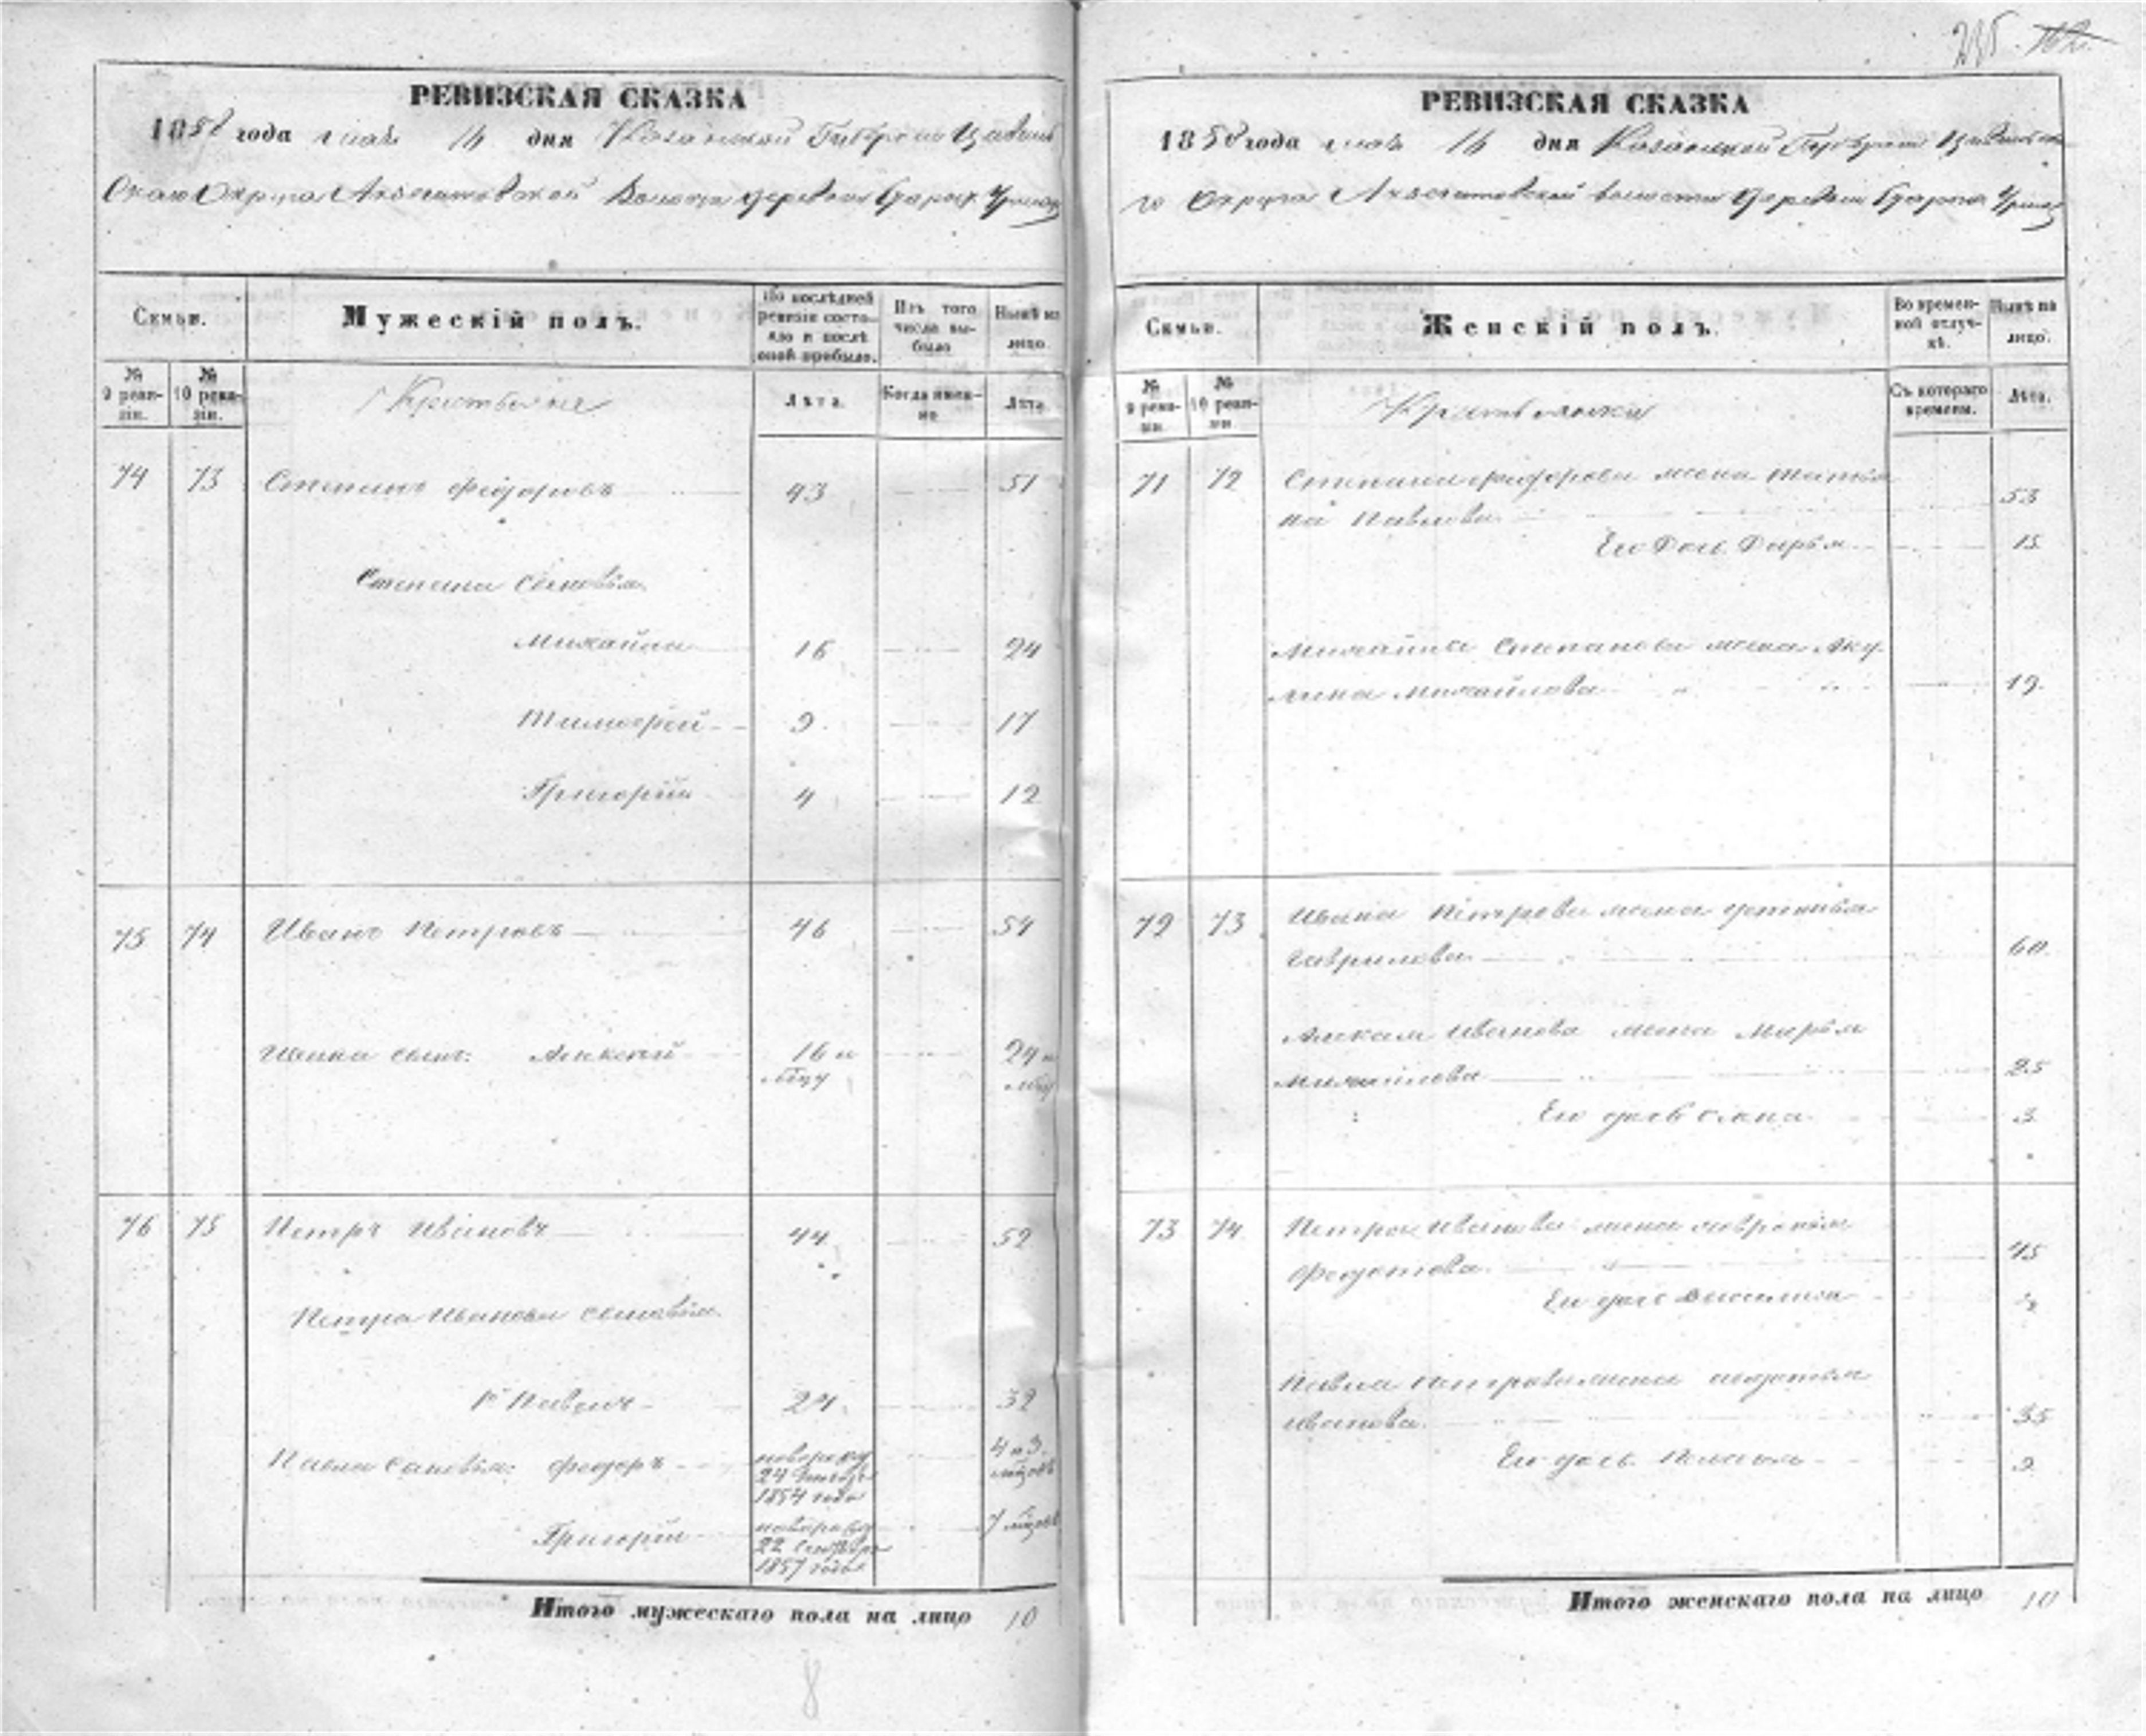 РЕВИЗСКАЯ СКАЗКА
1858 года мая 16 дня Казанской Губернии Цивиль
скаго Округа Волости деревни
Семьи.
Мужескій полъ.
По послѣдней
ревизіи состо-
яло и послѣ
оной прибыло.
Изъ того
числа вы-
было
Нынѣ на
лицо.
№
9 реви-
зіи.
№
10 реви-
зіи.
Крестьяне
Лѣта.
Когда имен-
но
Лѣта
74 73 Степанъ Федоровъ 43 51
Степана сыновья
Михайла 16 24
Тимофей 9 17
Григорій 4 12
75 74 Иванъ Петровъ 46 54
Ивана сынъ: Алексей 16 и 24 и
76 75 Петръ Ивановъ 44 52
Петра Иванова сыновья
1й Павелъ 24 32
Павла сыновья: Федоръ новорожд 4 и 3
24
1854 года
Григорій новорожд 7
22 Сентября
1857 года
Итого мужескаго пола на лицо 10
8
РЕВИЗСКАЯ СКАЗКА
1858 года мая 16 дня Казанской Губерніи
го Округа волости Деревни
Семьи.
Женскій полъ.
Во времен-
ной отлуч-
кѣ.
Нынѣ на
лицо.
№
9 реви-
зіи.
№
10 реви-
зіи
Крестьянки
Съ котораго
времени.
Лѣта.
71 72 Степана Федорова жена Татья
на Павлова 53
Его дочь Дарья 15
Михайла Степанова жена Аку
лина Михайлова 19.
72 73 Ивана Петрова жена Устинья
Гаврилова 60.
Алексея Иванова жена Марья
Михайлова 25
Его дочь Елена 3
73 74 Петра Иванова жена
Федотова 45
Его дочь Василиса
Павла Петрова жена Авдотья
Иванова. 35
Его дочь 9
Итого женскаго пола на лицо 10